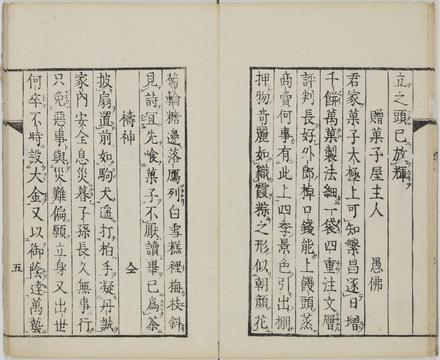 立之頭已放輝
贈菓子屋主人 愚佛
君家菓子太極上可知繁昌逐日増
千餅萬菓製法細一袋四重注文層
評判長好外郎棹口錢能上饅頭蒸
商賣何事有此上四季景色引出棚
押物奇麗如織霞粽之形似朝顔花
菊輪糖邊落鴈列白雪糕裡梅枝斜
見詩宜先喰菓子不厭讀畢已爲茶
禱神 仝
披扇置前如駒犬遥打拍手凝丹誠
家内安全息災暮子孫長久無事行
只免惡事與災難偏願立身又出世
何卒不時設大金又以御蔭達萬藝
五